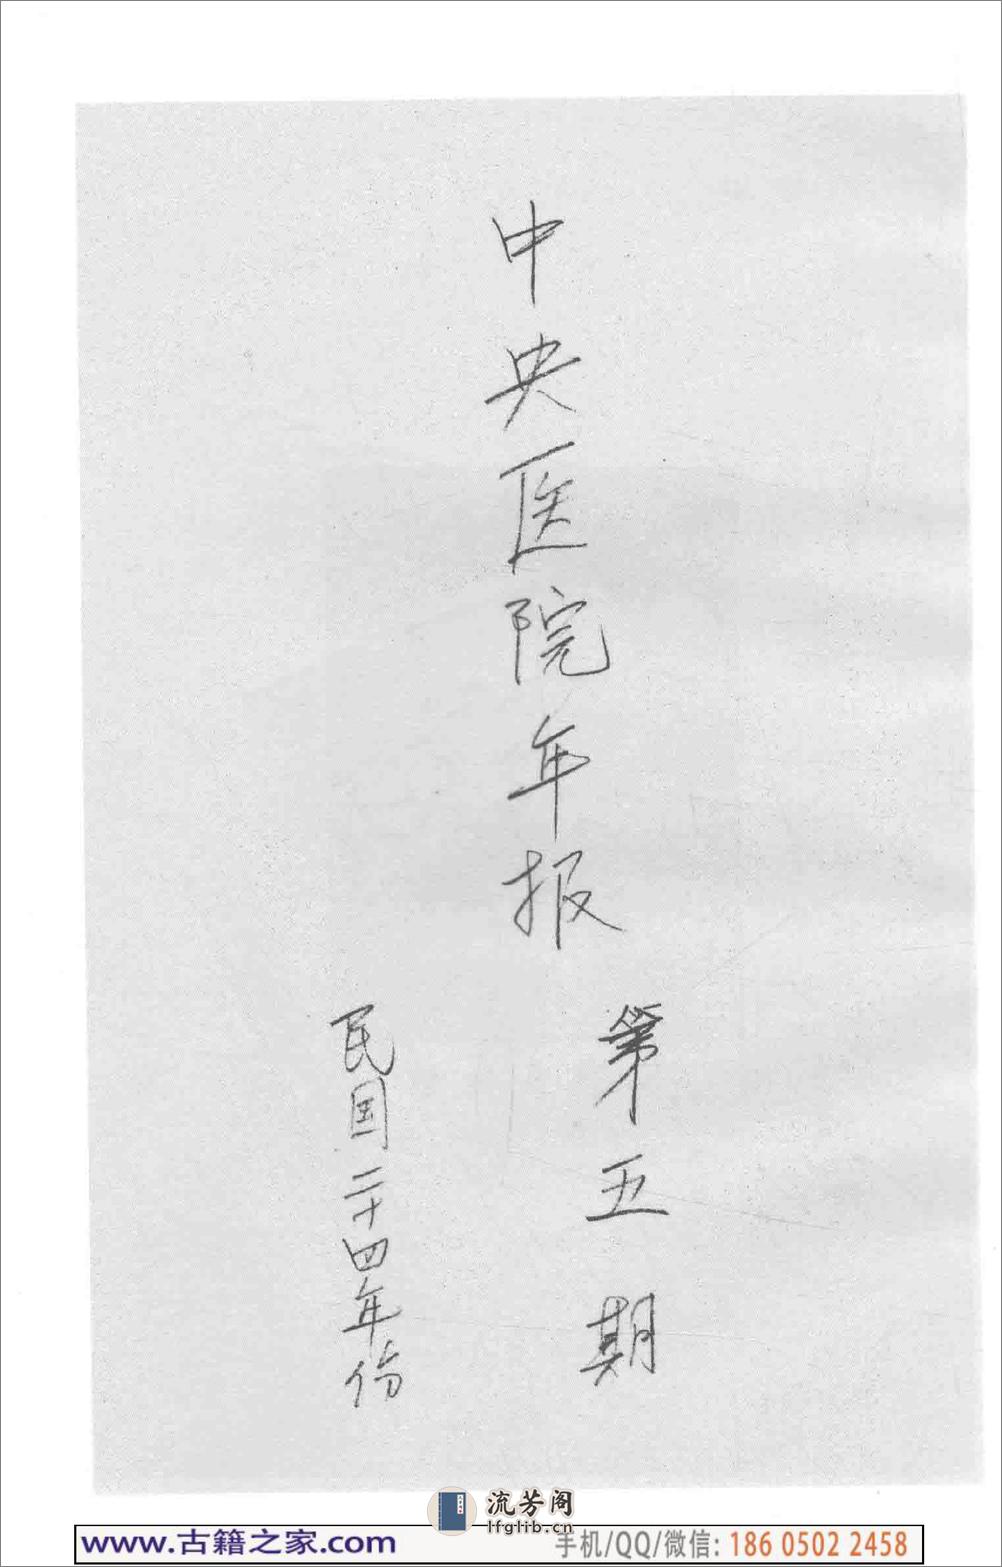 中央医院年报
第五期
民国二十四年份
流芳阁
lfglib.cn
www.古籍之家.com
手机/QQ/微信: 186 0502 2458